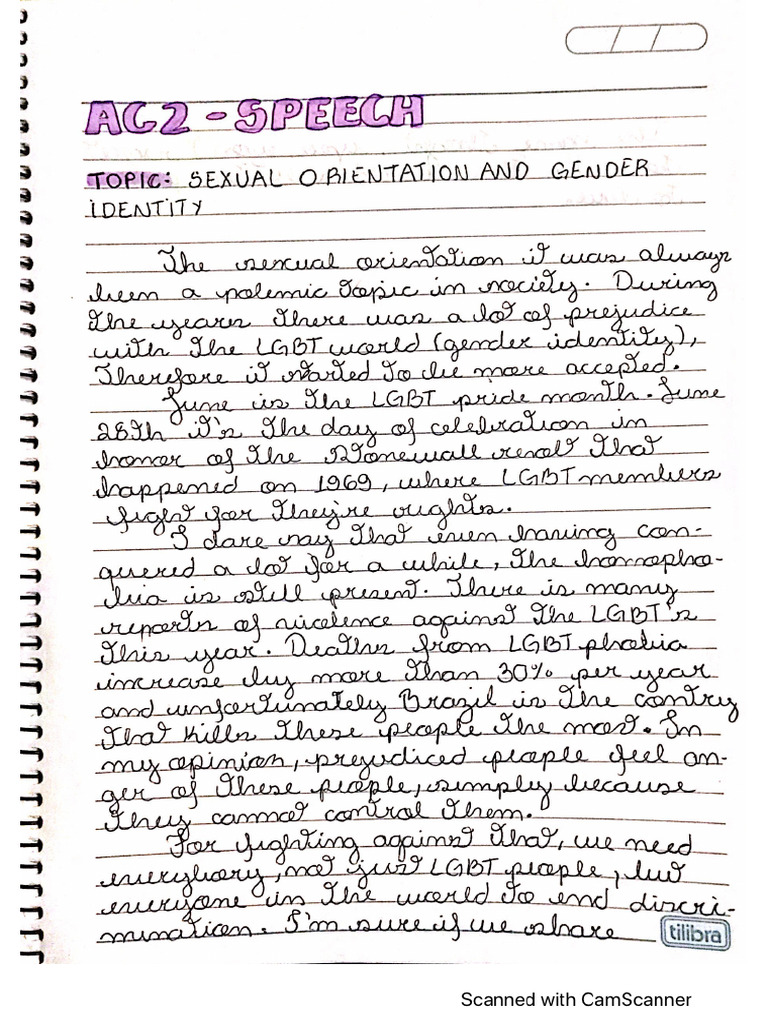 AC2 - SPEECH
TOPIC: SEXUAL ORIENTATION AND GENDER
IDENTITY
The sexual orientation it was always
been a polemic topic in society. During
the years there was a lot of prejudice
with the LGBT world (gender identity),
therefore it started to be more accepted.
June is the LGBT pride month. June
28th it's the day of celebration in
honor of the Stonewall revolt that
happened on 1969, where LGBT members
fight for they're rights.
I dare say that even having con-
quered a lot for a while, the homopho-
bia is still present. There is many
reports of violence against the LGBT's
this year. Deaths from LGBT phobia
increase by more than 30% per year
and unfortunately Brazil is the contry
that kills these people the most. In
my opinion, prejudiced people feel an-
ger of these people, simply because
they cannot control them.
For fighting against that, we need
everybory, not just LGBT people, but
everyone in the world to end discri-
mination. I'm sure if we share
tilibra
Scanned with CamScanner